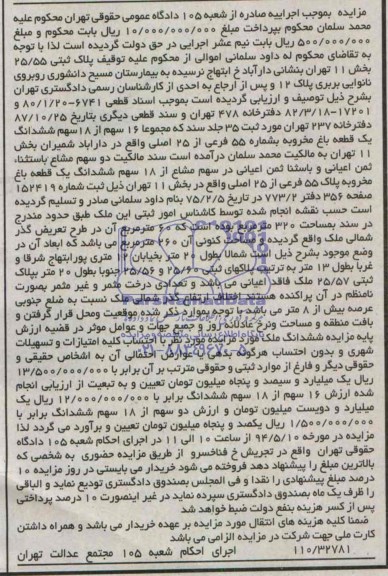 مزایده بموجب اجراییه صادره از شعبه ۱۰۵ دادگاه عمومی حقوقی تهران محکوم علیه
محمد سلمان محکوم بپرداخت مبلغ ۱۰/۰۰۰/۰۰۰/۰۰۰ ریال بابت محکوم و مبلغ
۵۰۰/۰۰۰/۰۰۰ ریال بابت نیم عشر اجرایی در حق دولت گردیده است لذا با توجه
به تقاضای محکوم له داود سلمانی اموالی از محکوم علیه توقیف پلاک ثبتی ۲۵/۵۵
بخش ۱۱ تهران بنشانی دارآباد خ ابتهاج نرسیده به بیمارستان مسیح دانشوری روبروی
نانوایی بربری پلاک ۱۲ و پس از ارجاع به احدی از کارشناسان رسمی دادگستری تهران
بشرح ذیل توصیف و ارزیابی گردیده است بموجب اسناد قطعی ۶۷۴۱-۸۰/۱/۲۰ و
۱۷۲۰۱-۸۲/۳/۱۸ دفترخانه ۴۷۸ تهران و سند قطعی دیگری بتاریخ ۸۷/۱۰/۲۵
دفترخانه ۲۳۷ تهران مورد ثبت ۳۵ جلد سند که مجموعا ۱۶ سهم از ۱۸ سهم ششدانگ
یک قطعه باغ مخروبه بشماره ۵۵ فرعی از ۲۵ اصلی واقع در داراباد شمیران بخش
۱۱ تهران به مالکیت محمد سلمان درآمده است سند مالکیت دو سهم مشاع باستثناء
ثمن اعیانی و باستنا ثمن اعیانی در سهم مشاع از ۱۸ سهم ششدانگ یک قطعه باغ
مخروبه پلاک ۵۵ فرعی از ۲۵ اصلی واقع در بخش ۱۱ تهران ذیل ثبت شماره ۱۵۲۴۱۹
صفحه ۳۵۶ دفتر ۷۷۳/۲ در تاریخ ۷۵/۲/۵ بنام داود سلمانی صادر و تسلیم گردیده
است حسب نقشه انجام شده توسط کاشناس امور ثبتی این ملک طبق حدود مندرج
در سند بمساحت ۳۲۰ مترمربع بوده است که ۶۰ مترمربع آن در طرح تعریض گذر
شمالی ملک واقع گردیده کنونی آن ۲۶۰ مترمربع می باشد که ابعاد آن در
وضع موجود بشرح ذیل است شمالا بطول ۲۰ متر بخیابان ۱۲ متری پورابتهاج شرقا و
غربا بطول ۱۳ متر به ترتیب پلاکهای ثبتی ۲۵/۶۰ و ۲۵/۵۶ جنوبا بطول ۲۰ متر بپلاک
ثبتی ۲۵/۵۷ ملک فاقد اعیانی می باشد و تعدادی درخت مثمر و غیر مثمر بصورت
نامنظم در آن پراکنده هستند اختلاف ارتفاع گذر شمالی ملک نسبت به ضلع جنوبی
عرصه بیش از ۸ متر می باشد با توجه بموارد ذکر شده موقعیت ومحل قرار گرفتن و
بافت منطقه و مساحت ونرخ عادلانه روز و جمیع جهات و عوامل موثر در قضیه ارزش
پایه مزایده ششدانگ ملک مورد مزایده مورد نظر با احتساب کلیه امتیازات و تسهیلات
شهری و بدون احتساب هرگونه بدهی احتمالی آن به اشخاص حقیقی و
حقوقی دیگر و فارغ از موارد ثبتی و حقوقی مترتب بر آن برابر با ۱۳/۵۰۰/۰۰۰/۰۰۰
ریال یک میلیارد و سیصد و پنجاه میلیون تومان تعیین و به تبعیت از ارزیابی انجام
شده ارزش ۱۶ سهم از ۱۸ سهم ششدانگ برابر با ۱۲/۰۰۰/۰۰۰/۰۰۰ ریال یک
میلیارد و دویست میلیون تومان و ارزش دو سهم از ۱۸ سهم ششدانگ برابر با
۱/۵۰۰/۰۰۰/۰۰۰ ریال یکصد و پنجاه میلیون تومان تعیین و برآورد می گردد لذا
مزایده در مورخه ۹۴/۵/۱۰ از ساعت ۱۰ الی ۱۱ در اجرای احکام شعبه ۱۰۵ دادگاه
حقوقی تهران واقع در تجریش خ فناخسرو از طریق مزایده حضوری به شخصی که
بالاترین مبلغ را پیشنهاد دهد فروخته می شود خریدار می بایستی در روز مزایده ۱۰
درصد مبلغ پیشنهادی را نقدا و فی المجلس بصندوق دادگستری تودیع نماید و الباقی
را ظرف یک ماه بصندوق دادگستری سپرده نماید در غیر اینصورت ۱۰ درصد پرداختی
پس از کسر هزینه بنفع دولت ضبط خواهد شد
ضمنا کلیه هزینه های انتقال مورد مزایده بر عهده خریدار می باشد و همراه داشتن
کارت ملی جهت شرکت در مزایده الزامی می باشد
۱۱۰/۳۲۷۸۱ اجرای احکام شعبه ۱۰۵ مجتمع عدالت تهران